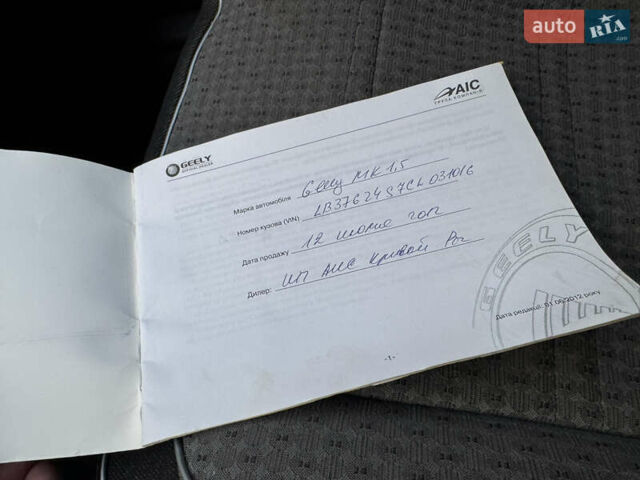 auto RIA.com
АІС
ГРУПА КОМПАНІЙ
GEELY
OFFICIAL DEALER
Марка автомобіля Geely MK 1,5
Номер кузова (VIN) LB37624S7CL031016
Дата продажу 12 июня 2012
Дилер: ИП АИС Кривой Рог
GEELY
Дата редакції: 01.06.2012 року
-1-